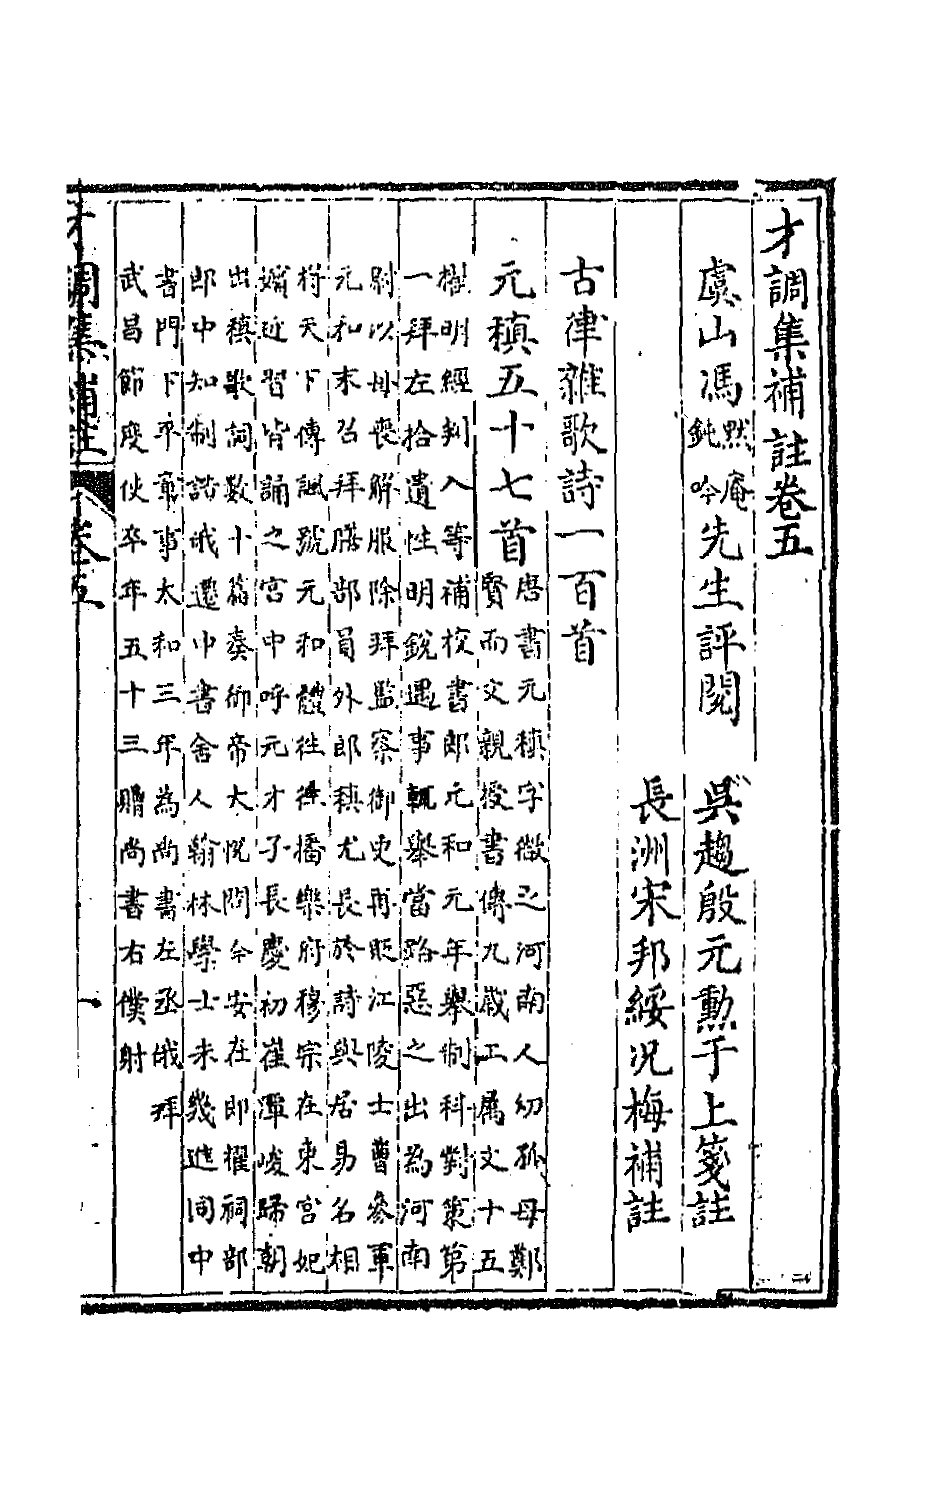 才調集補註卷五
虞山馮默庵鈍吟先生評閱 吳趨殷元勳于上箋註
長洲宋邦綏況梅補註
古律雜歌詩一百首
元稹五十七首
唐書元稹字微之河南人幼孤母鄭
賢而文親授書傳九歲工屬文十五
擢明經判入等補校書郎元和元年舉制科對策第
一拜左拾遺性明銳遇事輒舉當路惡之出為河南
尉以母喪解服除拜監察御史再貶江陵士曹參軍
元和末召拜膳部員外郎稹尤長於詩與居易名相
埒天下傳諷號元和體往往播樂府穆宗在東宮妃
嬪近習皆誦之宮中呼元才子長慶初崔潭峻歸朝
出稹歌詞數十篇奏御帝大悅問今安在即擢祠部
郎中知制誥俄遷中書舍人翰林學士未幾進同中
書門下平章事太和三年為尚書左丞俄拜
武昌節度使卒年五十三贈尚書右僕射
才調集補註 卷五 一